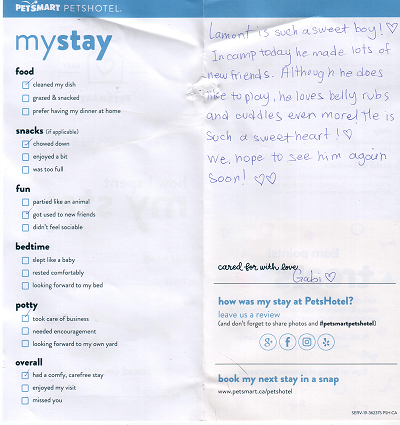 PETSMART PETSHOTEL.
mystay
food
cleaned my dish
grazed & snacked
prefer having my dinner at home
snacks (if applicable)
chowed down
enjoyed a bit
was too full
fun
partied like an animal
got used to new friends
didn't feel sociable
bedtime
slept like a baby
rested comfortably
looking forward to my bed
potty
took care of business
needed encouragement
looking forward to my own yard
overall
had a comfy, carefree stay
enjoyed my visit
missed you
Lamont is such a sweet boy! ♡
In camp today he made lots of
new friends. Although he does
like to play, he loves belly rubs
and cuddles even more! He is
such a sweetheart! ♡
We hope to see him again
soon! ♡♡
cared for with love
Gabi ♡
how was my stay at PetsHotel?
leave us a review
(and don't forget to share photos and #petsmartpetshotel)
book my next stay in a snap
www.petsmart.ca/petshotel